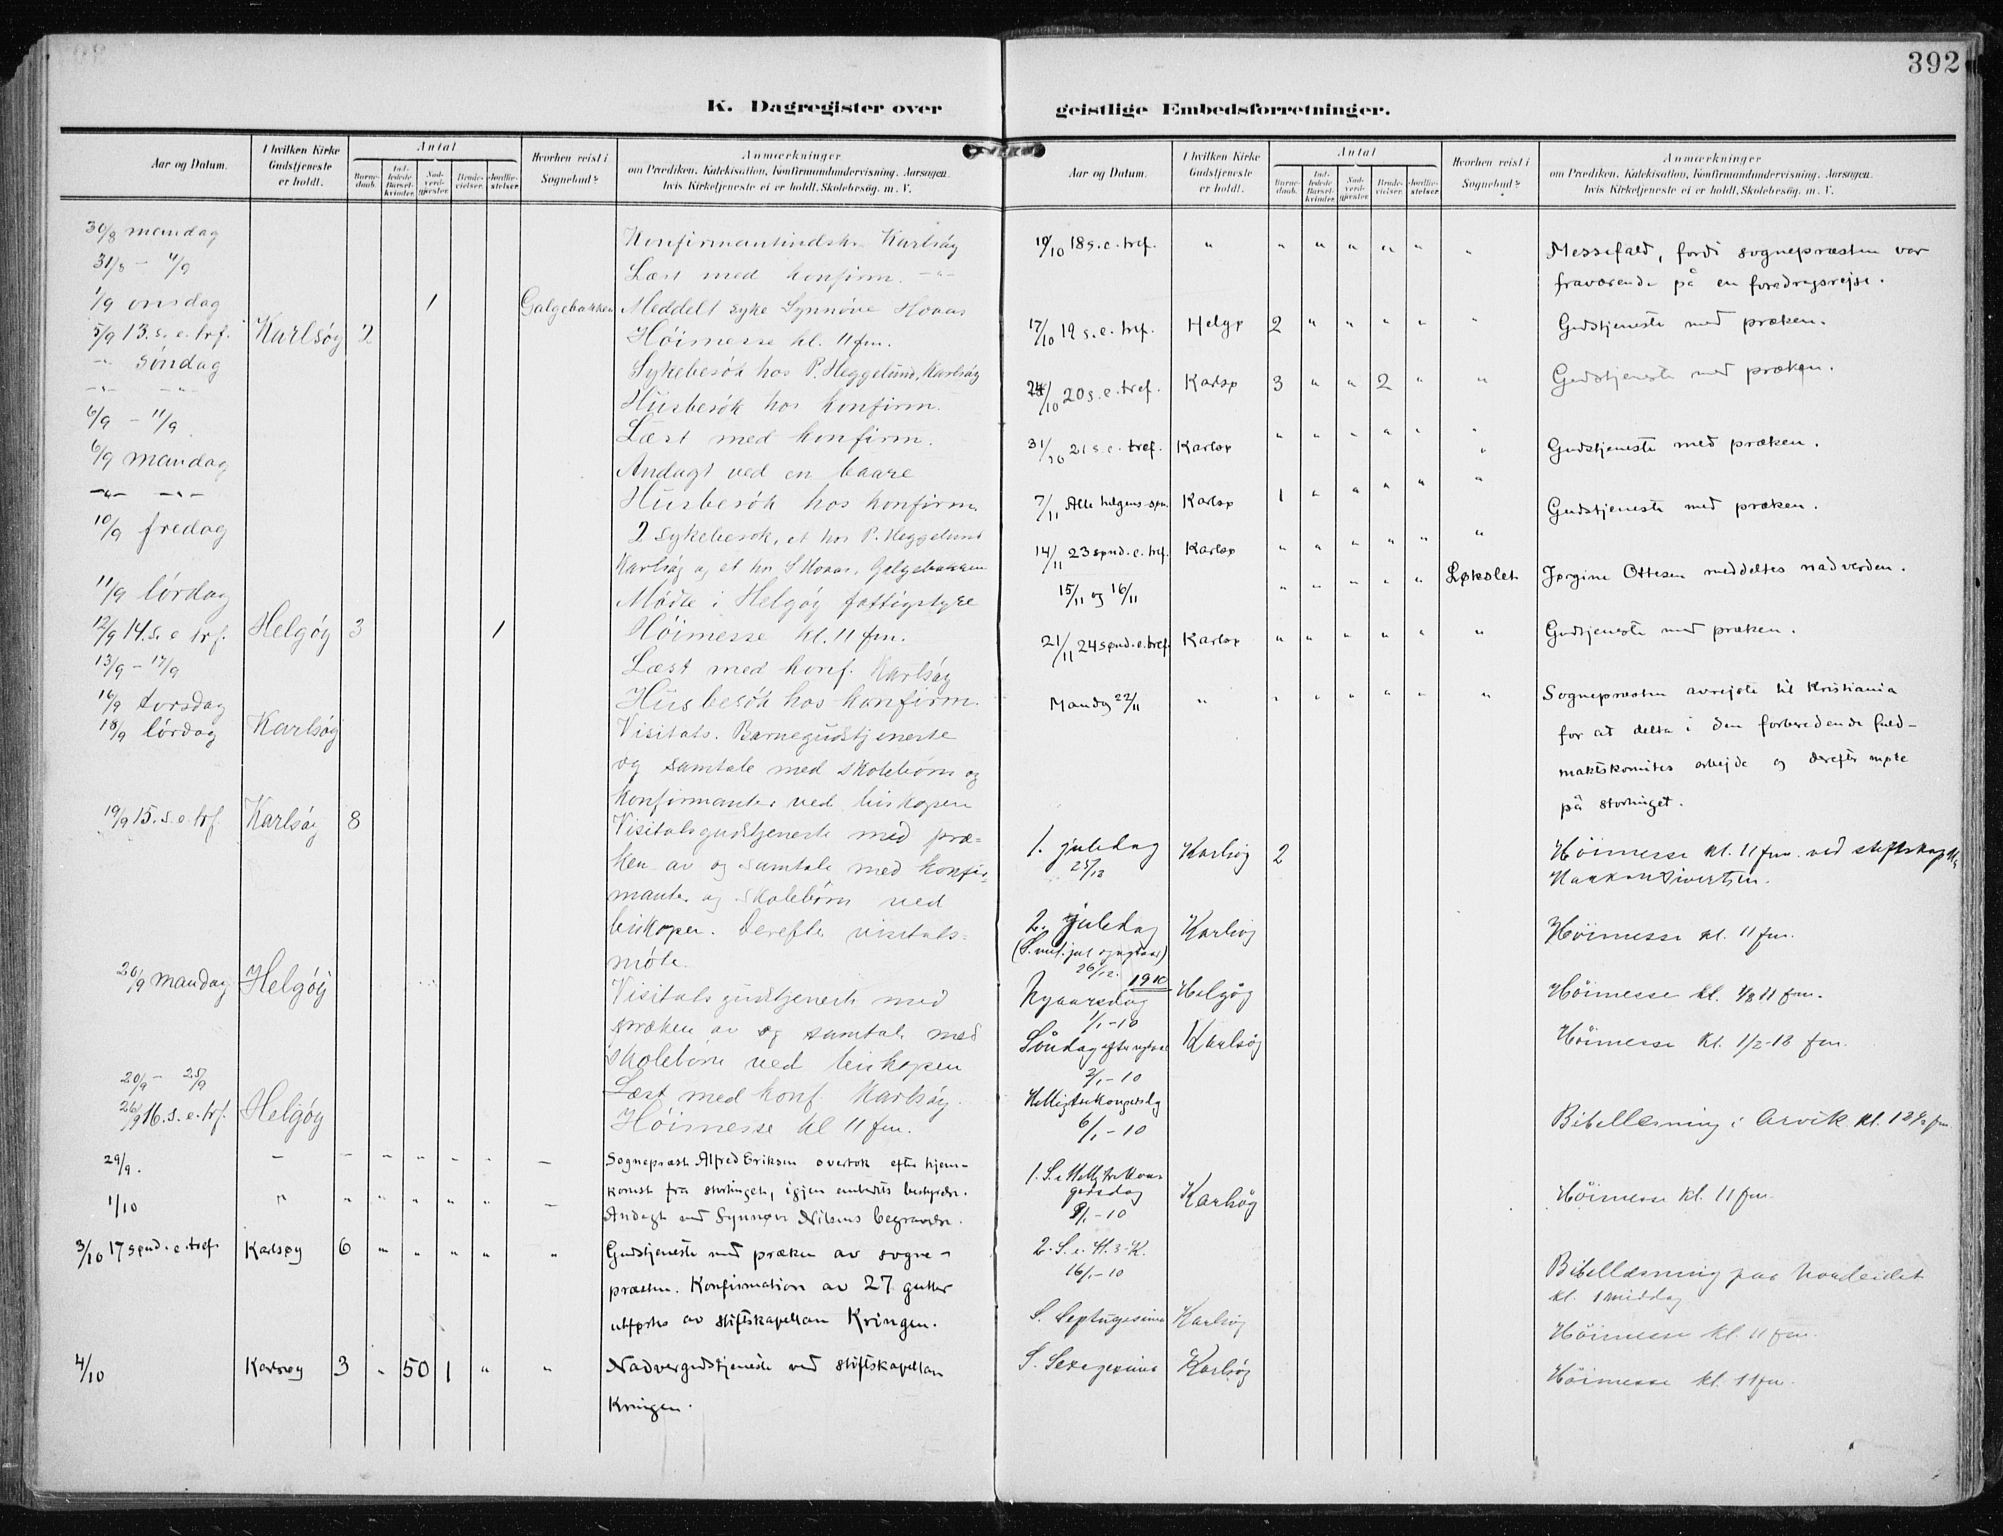 392
K. Dagregister over geistlige Embedsforretninger.
Aar og Datum.
I hvilken Kirke Gudstjeneste er holdt.
Antal
Barnedaab.
Indledede Barselkvinder.
Nadverdgjester.
Brudevielser.
Jordfæstelser.
Hvorhen reist i Sognebud?
Anmærkninger
om Prædiken, Katekisation, Konfirmandundervisning, Aarsagen
hvis Kirketjeneste ei er holdt, Skolebesøg, m. V.
30/8 mandag Karlsøy
31/8 - 4/9 Læst med konfirm. -"-
1/9 onsdag 1 Galgebakken Meddelt syke Synnøve Hovas
5/9 13. s. e. trf. Karlsöy 2 Höimesse kl. 11 fm.
-"- söndag Sykebesök hos P. Heggelund, Karlsöy
-"- -"- Husbesök hos konfirm.
6/9 - 11/9 Læst med konfirm.
6/9 mandag Andagt ved en baare
-"- -"- Husbesök hos konfirm.
10/9 fredag 2 sykebesök, et hos P. Heggelund
Karlsöy og et hos S. Hovas, Galgebakken
11/9 lördag Möte i Helgöy fattigstyre
12/9 14. s. e. trf. Helgöy 3 1 Höimesse kl. 11 fm.
13/9 - 17/9 Læst med konf. Karlsöy
16/9 torsdag Husbesök hos konfirm.
18/9 lördag Karlsöy Visitats. Barnegudstjeneste
og samtale med skolebörn og
konfirmanter ved biskopen
19/9 15. s. e. trf. Karlsöy 8 Visitatsgudstjeneste med præ-
ken av og samtale med konfir-
manter og skolebörn ved
biskopen. Derefter visitats-
möte.
20/9 mandag Helgöy Visitatsgudstjeneste med
præken av og samtale med
skolebörn ved biskopen
20/9 - 25/9 Læst med konf. Karlsöy.
26/9 16. s. e. trf. Helgöy Höimesse kl 11 fm.
29/9. - - - - - - - Sognepræst Alfred Eriksen overtok efter hjem-
komst fra stortinget, igjen embedets bestyrelse.
1/10 " " " " " " - Andagt ved Synnøve Nilsens begravelse.
3/10 17 sønd. e. tref. Karlsøy 6 " " " " " Gudstjeneste med præken av sogne-
præsten. Konfirmation av 27 gutter
utførtes av stiftskapellan Kringen.
4/10 Karlsøy 3 " 50 1 " " Nadvergudstjeneste ved stiftskapellan
Kringen.
Aar og Datum.
I hvilken Kirke Gudstjeneste er holdt.
Antal
Barnedaab.
Indledede Barselkvinder.
Nadverdgjester.
Brudevielser.
Jordfæstelser.
Hvorhen reist i Sognebud?
Anmærkninger
om Prædiken, Katekisation, Konfirmandundervisning, Aarsagen
hvis Kirketjeneste ei er holdt, Skolebesøg, m. V.
10/10 18 s. e. tref. " " " " " " " Messefald, fordi sognepræsten var
fraværende på en foredragsrejse.
17/10 19 s. e. tref. Helgø 2 " " " " " Gudstjeneste med præken.
24/10 20 s. e. tref. Karlsø 3 " " 2 " " Gudstjeneste med præken.
31/10 21 s. e. tref. Karlsø " " " " " " Gudstjeneste med præken.
7/11 Alle helgens søn. Karlsø 1 " " " " " Gudstjeneste med præken.
14/11 23 sønd. e. tref. Karlsø " " " " " "
15/11 og 16/11 " " " " " Løkslet Jørgine Ottesen meddeltes nadverden.
21/11 24 sønd. e. tref. Karlsø " " " " " " Gudstjeneste med præken.
Mandag 22/11 " " " " " " " Sognepræsten avrejste til Kristiania
for at delta i den forberedende fuld-
maktskomites arbejde og derefter møte
på stortinget.
1. juledag Karlsöy 2 Höimesse kl. 11 fm. ved stiftskap.
25/12 Haakon Sivertsen.
2. juledag Karlsöy Höimesse kl. 11 fm.
(S. mel. jul og nyttaar)
26/12.
1910
Nyaarsdag Helgöy Höimesse kl. 1/2 11 fm.
1/1-10
Söndag efter nytaar Karlsöy Höimesse kl. 1/2-12 fm.
2/1-10
Helligtrekongersdag Bibellæsning i Arvik kl. 12 1/2 fm
6/1-10
1. S. e. Hellig tre Kon-
gersdag Karlsöy Höimesse kl. 11 fm.
9/1-10
2. S. e. H. 3. K. Bibellæsning paa Nordeidet
16/1-10 kl. 1 middag
S. Septuagesima Karlsöy Höimesse kl. 11 fm.
S. Sexagesima Karlsöy Höimesse kl. 11 fm.